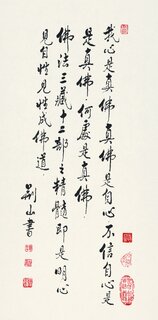 我心是真佛真佛是自心不信自心是
是真佛何處是真佛
佛法三藏十二部之精髓即是明心
見自性見性成佛道
荆山書